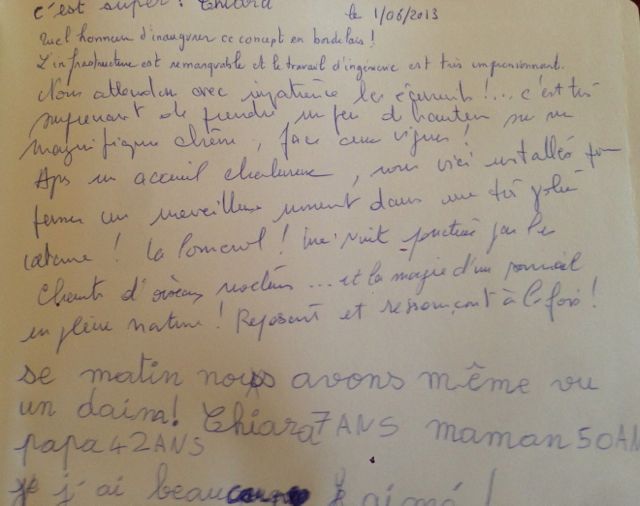 c'est super! Chiara
le 1/06/2013
Quel honneur d'inaugurer ce concept en bordelais!
L'infrastructure est remarquable et le travail d'ingénierie est très impressionnant.
Nous attendons avec impatience les écureuils!... c'est très
surprenant de prendre un peu d'hauteur sur un
magnifique chêne, face aux vignes!
Aps un accueil chaleureux, nous voici installés pour
passer un merveilleux moment dans une très jolie
cabane! La Pomerol! Une nuit ponctuée par les
chants d'oiseaux nocturnes... et la magie d'un sommeil
en pleine nature! Reposant et ressourçant à la fois!
se matin nous avons même vu
un daim! Chiara 7 ANS maman 50 AN
papa 42 ANS
j'ai beaucoup aimé!